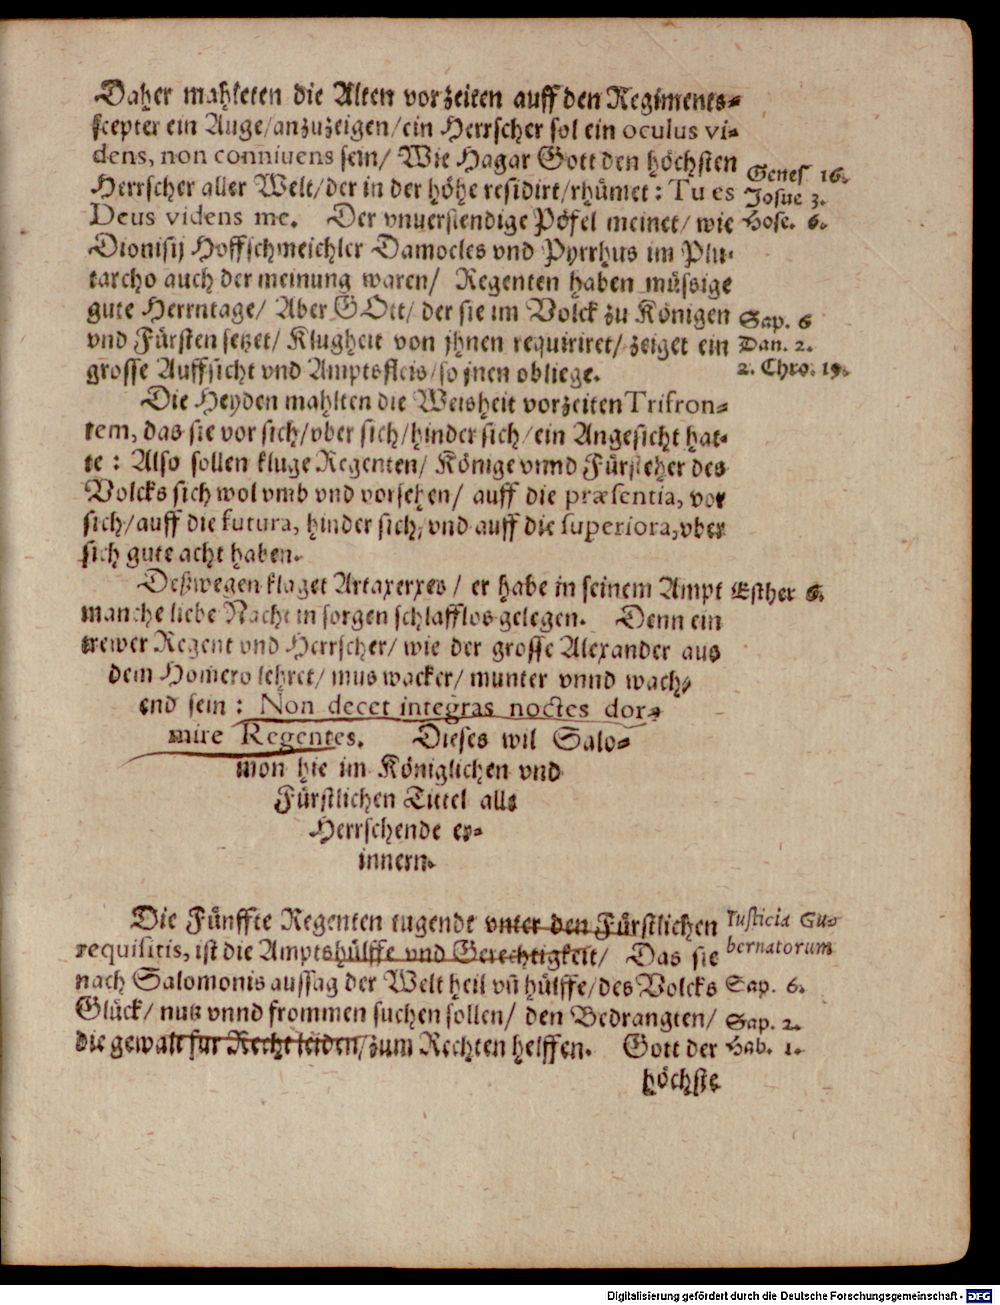 Daher mahleten die Alten vorzeiten auff den Regiments-
scepter ein Auge/anzuzeigen/ein Herrscher sol ein oculus vi-
dens, non conniuens sein/ Wie Hagar Gott den höchsten
Genes 16.
Herrscher aller Welt/der in der höhe residirt/rhümet: Tu es
Josue 3.
Deus videns me. Der vnuerstendige Pöfel meinet/ wie
Hose. 6.
Dionisij Hoffschmeichler Damocles vnd Pyrrhus im Plu-
tarcho auch der meinung waren/ Regenten haben müssige
gute Herrntage/ Aber GOtt/ der sie im Volck zu Königen
Sap. 6
vnd Fürsten setzet/ Klugheit von jhnen requiriret/ zeiget ein
Dan. 2.
grosse Auffsicht vnd Amptsfleis/so jnen obliege.
2. Chro. 19.
Die Heyden mahlten die Weisheit vorzeiten Trifron-
tem, das sie vor sich/vber sich/hinder sich/ein Angesicht hat-
te: Also sollen kluge Regenten/ Könige vnnd Fürsteher des
Volcks sich wol vmb vnd vorsehen/ auff die præsentia, vor
sich/auff die futura, hinder sich, vnd auff die superiora,vber
sich gute acht haben.
Deßwegen klaget Artaxerxes/ er habe in seinem Ampt
Esther 6.
manche liebe Nacht in sorgen schlafflos gelegen. Denn ein
trewer Regent vnd Herrscher/ wie der grosse Alexander aus
dem Homero lehret/ mus wacker/ munter vnnd wach-
end sein: Non decet integras noctes dor-
mire Regentes. Dieses wil Salo-
mon hie im Königlichen vnd
Fürstlichen Tittel alls
Herrschende er-
innern.
Die Fünffte Regenten tugendt vnter den Fürstlichen
Iusticia Gu-
requisitis, ist die Amptshülffe vnd Gerechtigkeit/ Das sie
bernatorum
nach Salomonis aussag der Welt heil vñ hülffe/des Volcks
Sap. 6.
Glück/ nutz vnnd frommen suchen sollen/ den Bedrangten/
Sap. 2.
die gewalt fur Recht leiden/zum Rechten helffen. Gott der
Hab. 1.
höchste
Digitalisierung gefördert durch die Deutsche Forschungsgemeinschaft - DFG